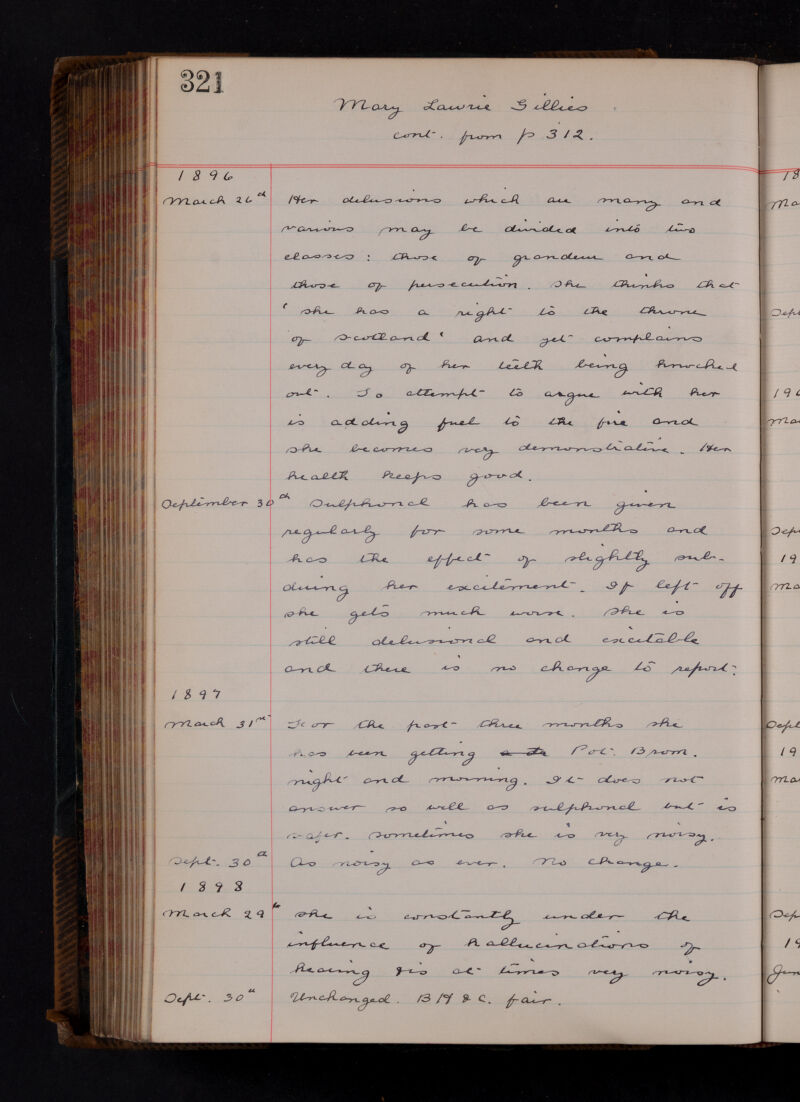 321
Mary Lawrie Gillies
cont. from p 312.
1896
March 26th Her delusions which are many and
various may be divided into two
classes: those of grandeur and
those of persecution. She thinks that
'she has a right to the throne
of Scotland' and yet complains
every day of her teeth being knocked
out. To attempt to argue with her
is adding fuel to the fire and
she becomes very demonstrative. Her
health keeps good.
September 30th Sulphonal has been given
regularly for some months and
has the effect of slightly sub-
duing her excitement. If left off
she gets much worse. She is
still delusional and excitable
and there is no change to report.
1897
March 31st For the past three months she
has been getting Pot. Brom.
night and morning. It does not
answer so well as sulphonal but is
safer. Sometimes she is very noisy.
Sept. 30th As noisy as ever. No change.
1898
March 29th She is constantly under the
influence of hallucinations of
hearing & is at times very noisy.
Sept. 30th Unchanged. B H & C. fair.